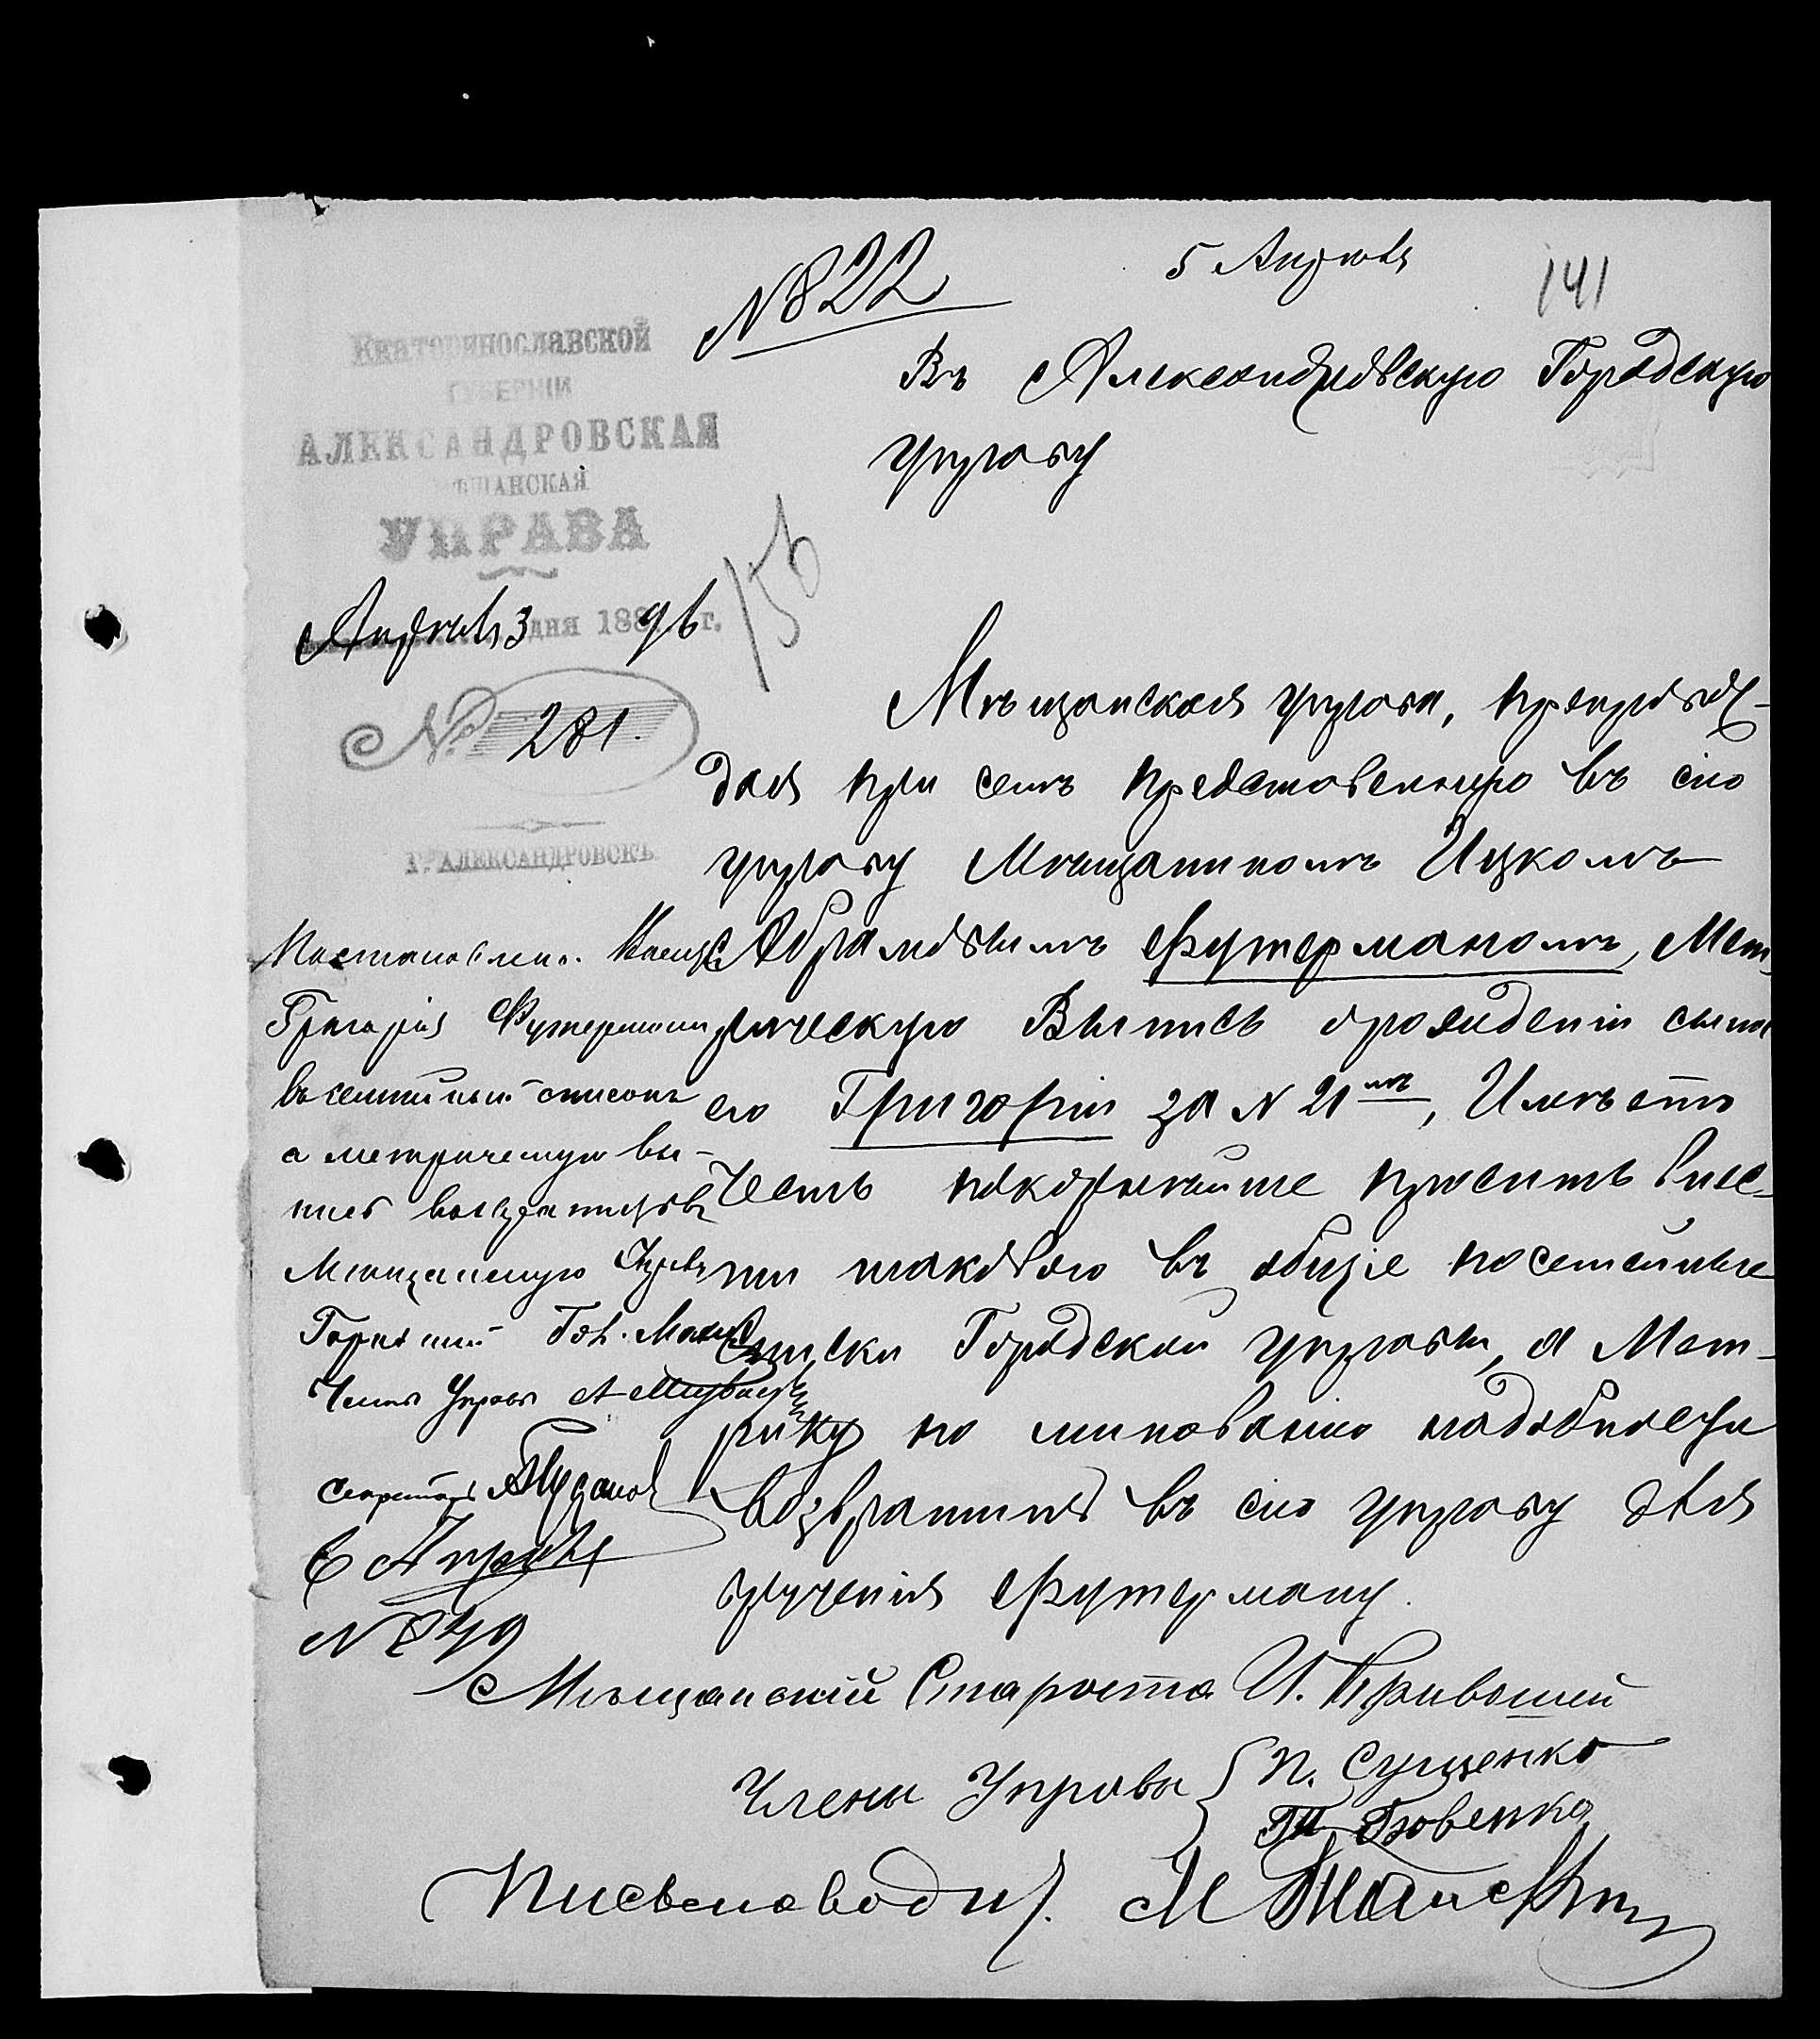 № 822
5 Апрѣля
141
Екатеринославской
ГУБЕРНІИ
АЛЕКСАНДРОВСКАЯ
ѢЩАНСКАЯ
УПРАВА
Апрѣля 3 дня 188 96 г.
156
№ 281.
Г. АЛЕКСАНДРОВСКЪ
Въ Александровскую Городскую
Управу
Мѣщанская управа, препровож-
дая при семъ представленную въ сію
управу Мѣщаниномъ Ицкомъ
Абрамовымъ Футерманомъ, Мет-
рическую Выпись о рожденіи сына
его Григорія за № 21мъ, Имѣетъ
честь покорнѣйше просить внес-
ти таковаго въ общіе посемейные
Списки Городской управы, а Мет-
рику по минованію надобности
возвратить въ сію управу для
вручения Футерману.
Мѣщанскій Староста И. Кривошей
Члены Управы { П. Сущенко
Бовенко
Письмоводи.
Постановлен.
Григорія Футерман
въ семейный списокъ
а метрическую вы-
пись возвратить въ
Мѣщанскую Управу
Городской Гол.
Членъ Управы А.
Секретарь
6 Апрѣля
№ 849